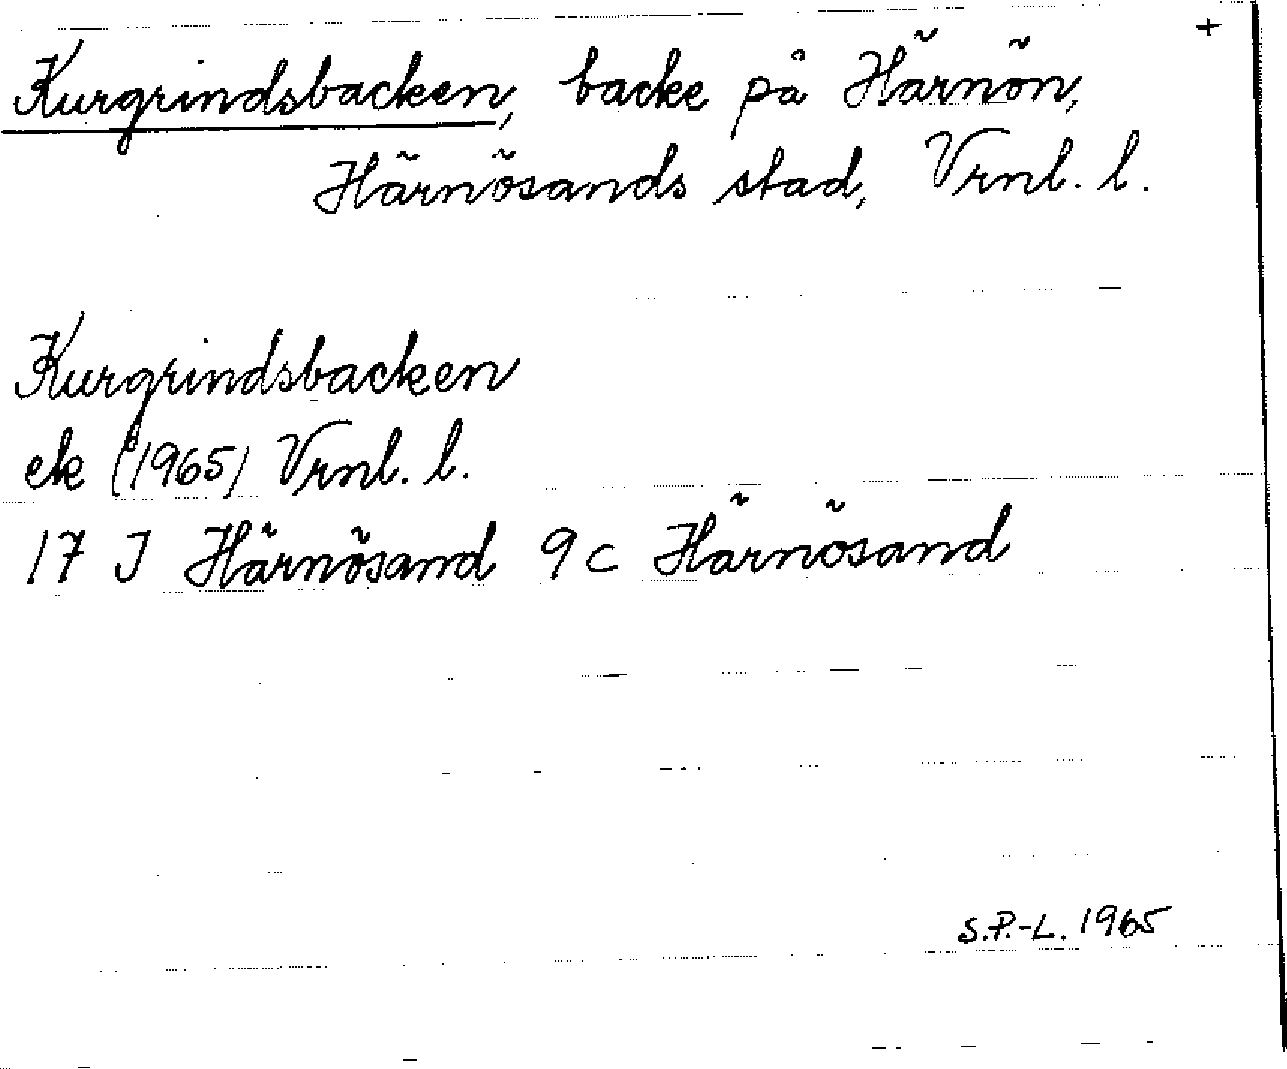 +
Kurgrindsbacken, backe på Härnön,
Härnösands stad, Vrnl. l.
Kurgrindsbacken
ek (1965) Vrnl. l.
17 J Härnösand 9 c Härnösand
S.P.-L. 1965